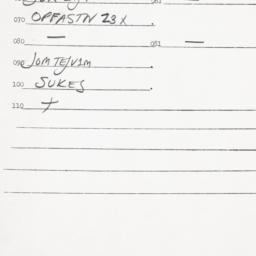 070 OPFASTN 23X .
080 — 081 —
090 JOMTEJVIM .
100 SUKES .
110 +